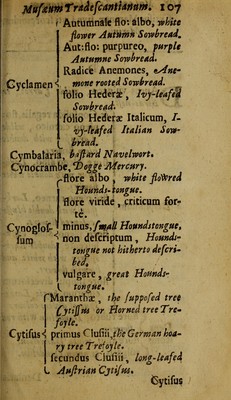 Musæum Tradescantianum. 107
Autumnale flo: albo, white
flower Autumn Sowbread.
Aut:flo: purpureo, purple
Autumne Sowbread.
Radice Anemones, Ane-
mone rooted Sowbread.
Cyclamen
folio Hederæ, Ivy-leafed
Sowbread.
folio Hederæ Italicum, I-
vy-leafed Italian Sow-
bread.
Cymbalaria, bastard Navelwort.
Cynocrambe, Dogge Mercury.
flore albo, white flowred
Hounds-tongue.
flore viride, criticum for-
tè.
Cynoglos-
sum
minus, small Houndstongue,
non descriptum, Hounds-
tongue not hitherto descri-
bed.
vulgare, great Hounds-
tongue.
Maranthæ, the supposed tree
Cytissus or Horned tree Tre-
foyle.
Cytisus
primus Clusiii, the German hoa-
ry tree Trefoyle.
secundus Clusiii, long-leafed
Austrian Cytisus.
Cytisus